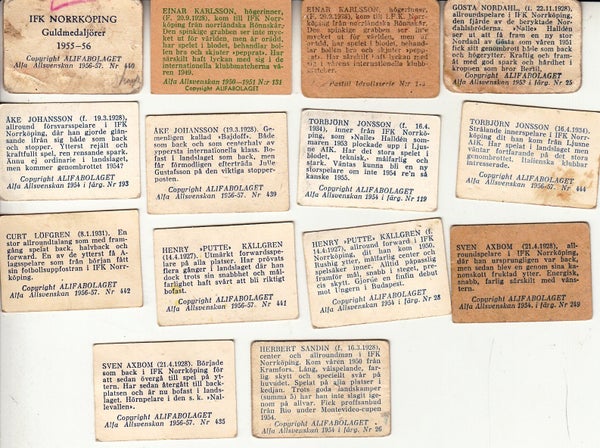 IFK NORRKÖPING
Guldmedaljörer
1955—56
Copyright ALIFABOLAGET
Alfa Allsvenskan 1956-57. Nr 440
EINAR KARLSSON, högerinner,
(F. 20.9.1928), kom till IFK Norr-
köping från norrländska Hörnsjö.
Den spinkige grabben ser inte myc-
ket ut för världen, men är orädd,
har spelet i blodet, behandlar
bollen bra och skjuter "pepprat". Har
särskilt haft lyckan med sig i de
internationella klubbmatcherna våren
1949.
Alfa Allsvenskan 1950—1951 Nr 131
EINAR KARLSSON, högerinner,
(F. 20.9.1928), kom till I.F.K. Norr-
köping från norrländska
Den spinkige grabben ser inte
mycket ut för världen, men är orädd,
har spelet i blodet, behandlar
bollen och skjuter
särskilt haft lyckan med sig i
internationella klubbmatcherna
Pastill Idrottsserie
GÖSTA NORDAHL, (f. 22.11.1928),
allroundspelare i IFK Norrköping,
den fjärde av de beryktade Nor-
dahlsbröderna. »Nalle» Halldén
ser ut att få fram en ny stor
Nordahl av Gösta som våren 1951
fick sitt genombrott både som back
och högerytter. Kraftig och fram-
åt med god spark och hårdhet i
kroppen som bror Bertil.
Copyright ALIFABOLAGET
Alfa Allsvenskan 1956-57 Nr 25
ÅKE JOHANSSON (f. 19.3.1928),
allround försvarsspelare i IFK
Norrköping, där han gjorde glän-
sande ifrån sig både som back
och stopper. Ytterst rejält och
kraftfullt spel, ren rensande spark.
Ännu ej ordinarie i landslaget,
men kommer genombrottet 1954?
Copyright ALIFABOLAGET
Alfa Allsvenskan 1954 i färg. Nr 193
ÅKE JOHANSSON (19.3.1928). Ge-
menligen kallad »Bajdoff». Både
back och som centerhalv av
yppersta internationella klass. Bo-
fast i landslaget som back, men
får förmodligen efterträda Julle
Gustafsson på den viktiga stopper-
posten.
Copyright ALIFABOLAGET
Alfa Allsvenskan 1956-57. Nr 439
TORBJÖRN JONSSON (f. 16.4.
1934), inner från IFK Norrkö-
ping, som »Nalle» Halldén som-
maren 1953 plockade upp i Ljusne
AIK. Har det stora spelet i
blodet, teknisk, målfarlig och
stark. Väntas kunna bli en ny
storspelare om inte 1954 re'n så
kanske 1955.
Copyright ALIFABOLAGET
Alfa Allsvenskan 1954 i färg Nr 119
TORBJÖRN JONSSON (16.4.1934).
Strålande innerspelare i IFK Norr-
köping dit han kom från Ljusne
AIK. Har spelat i landslaget men
väntar fortfarande på det stora
genombrottet. Italienska klubbar
intresserade.
Copyright ALIFABOLAGET
Alfa Allsvenskan 1956-57. Nr 444
CURT LÖFGREN (8.1.1931). En
stor allroundtalang som med fram-
gång spelat back, halvback och
forward. En av de ytterst få A-
lagsspelare som från början fått
sin fotbollsuppfostran i IFK Norr-
köping.
Copyright ALIFABOLAGET
Alfa Allsvenskan 1956-57. Nr 442
HENRY »PUTTE» KÄLLGREN
(14.4.1927). Utmärkt forwardsspe-
lare på alla platser. Har prövats
flera gånger i landslaget där han
dock trots sin snabbhet och mål-
farlighet haft svårt att bli riktigt
bofast.
Copyright ALIFABOLAGET
Alfa Allsvenskan 1956-57. Nr 441
HENRY »PUTTE» KÄLLGREN (f.
14.4.1927), allround forward i IFK
Norrköping, dit han kom 1950.
Hushig ytter, målfarlig center och
spelsäker inner. Alltid påpasslig
framför mål, snabb i steget, pre-
cis skytt. Gjorde en finfin debut
mot Ungern i Budapest.
Copyright ALIFABOLAGET
Alfa Allsvenskan 1954 i färg. Nr 28
SVEN AXBOM (21.4.1928), all-
roundspelare i IFK Norrköping,
där han ursprungligen var back,
men sedan blev en genom sina ka-
nonskott fruktad ytter. Energisk,
snabb, farlig särskilt med väns-
tern.
Copyright ALIFABOLAGET
Alfa Allsvenskan 1954 i färg Nr 249
SVEN AXBOM (21.4.1928). Började
som back i IFK Norrköping för
att sedan övergå till spel på yt-
tern. Har sedan återgått till back-
platsen och är nu bofast i lands-
laget. Hörnpelare i den s. k. »Nal-
levallen».
Copyright ALIFABOLAGET
Alfa Allsvenskan 1956-57. Nr 435
HERBERT SANDIN (f. 16.3.1928),
center och allroundman i IFK
Norrköping. Kom våren 1950 från
Kramfors. Lång, välspelande, far-
lig skytt och speciellt svår på
huvudet. Spelat på alla platser i
kedjan. Trots goda landskamper
(summa 5) har han inte slagit ige-
nom på allvar. Fick proffsanbud
från Rio under Montevideo-cupen
1954.
Copyright ALIFABOLAGET
Alfa Allsvenskan 1954 i färg. Nr 26